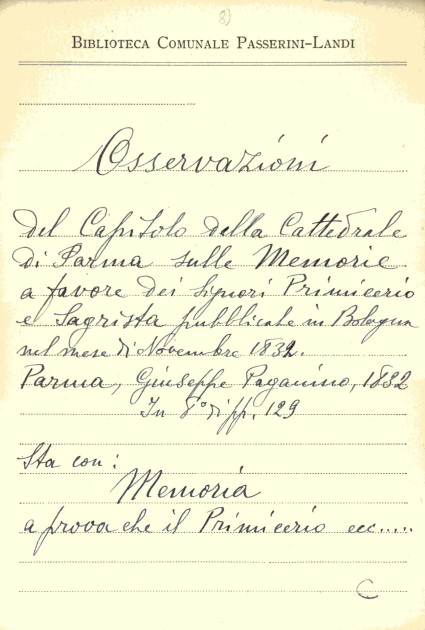 8)
BIBLIOTECA COMUNALE PASSERINI-LANDI
Osservazioni
del Capitolo della Cattedrale
di Parma sulle Memorie
a favore dei Signori Primicerio
e Sagrista pubblicate in Bologna
nel mese di Novembre 1832.
Parma, Giuseppe Paganino, 1832
In 8° di pp. 129
Sta con:
Memoria
a prova che il Primicerio ecc.....
C